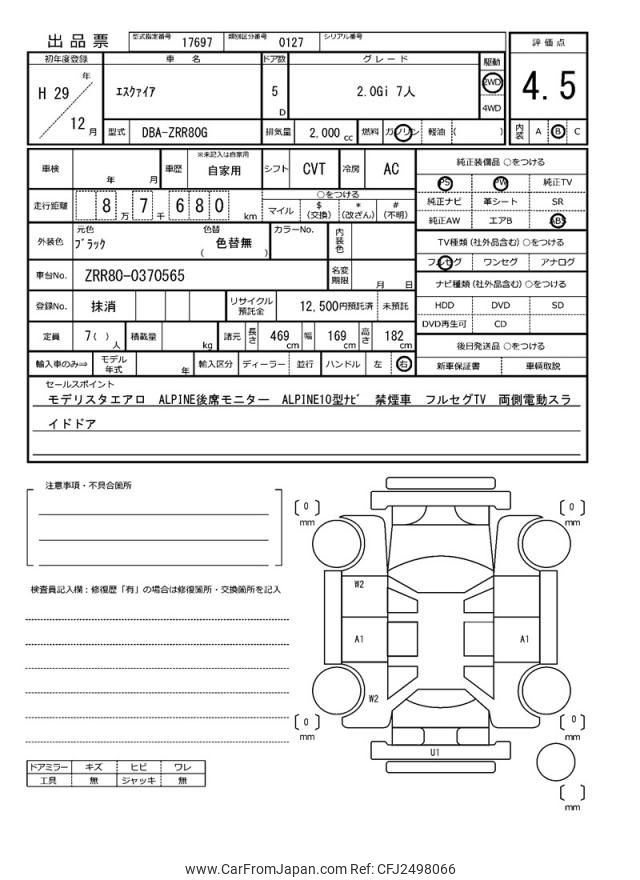 出品票 型式指定番号 17697 類別区分番号 0127 シリアル番号
初年度登録 車名 ドア数 グレード 駆動 評価点
H 29 年 ｴｽｸｧｲｱ 5 D 2.0Gi 7人 2WD 4.5
4WD
12 月 型式 DBA-ZRR80G 排気量 2,000 cc 燃料 ガソリン 軽油 ( ) 内装 A B C
車検 年 月 車歴 ※未記入は自家用 自家用 シフト CVT 冷房 AC 純正装備品 ○をつける
PS PW 純正TV
走行距離 8 万 7 千 6 8 0 km ○をつける 純正ナビ 革シート SR
マイル $ (交換) * (改ざん) # (不明) 純正AW エアB ABS
外装色 元色 ﾌﾞﾗｯｸ 色替 ( 色替無 ) カラーNo. 内装色 TV種類 (社外品含む) ○をつける
フルセグ ワンセグ アナログ
車台No. ZRR80-0370565 名変期限 月 日 ナビ種類 (社外品含む) ○をつける
登録No. 抹消 リサイクル預託金 12,500円預託済 未預託 HDD DVD SD
DVD再生可 CD
定員 7( ) 人 積載量 kg 諸元 長さ 469 cm 幅 169 cm 高さ 182 cm 後日発送品 ○をつける
輸入車のみ⇒ モデル年式 年 輸入区分 ディーラー 並行 ハンドル 左 右 新車保証書 車輌取説
セールスポイント
モデリスタエアロ ALPINE後席モニター ALPINE10型ﾅﾋﾞ 禁煙車 フルセグTV 両側電動スラ
イドドア
注意事項・不具合箇所
〔 0 〕 mm 〔 0 〕 mm
検査員記入欄：修復歴「有」の場合は修復箇所・交換箇所を記入
W2
A1 A1
W2
〔 0 〕 mm 〔 0 〕 mm
U1
ドアミラー キズ ヒビ ワレ
工具 無 ジャッキ 無
〔 〕 mm
www.CarFromJapan.com Ref: CFJ2498066